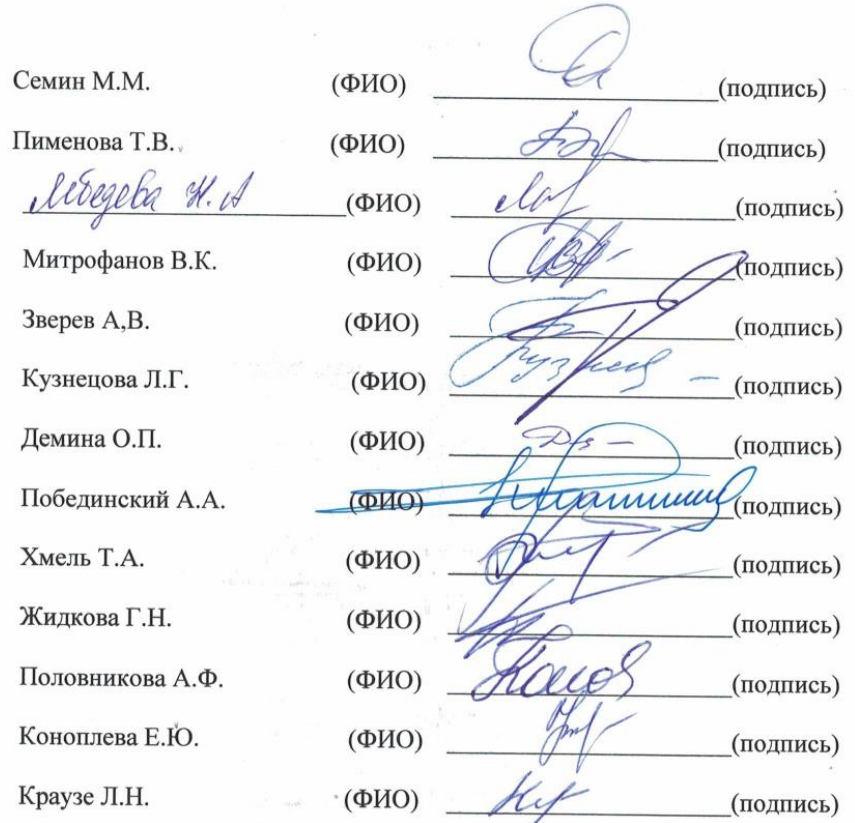 Семин М.М. (ФИО) (подпись)
Пименова Т.В. (ФИО) (подпись)
Лебедева Н.А (ФИО) (подпись)
Митрофанов В.К. (ФИО) (подпись)
Зверев А,В. (ФИО) (подпись)
Кузнецова Л.Г. (ФИО) (подпись)
Демина О.П. (ФИО) (подпись)
Побединский А.А. (ФИО) (подпись)
Хмель Т.А. (ФИО) (подпись)
Жидкова Г.Н. (ФИО) (подпись)
Половникова А.Ф. (ФИО) (подпись)
Коноплева Е.Ю. (ФИО) (подпись)
Краузе Л.Н. (ФИО) (подпись)